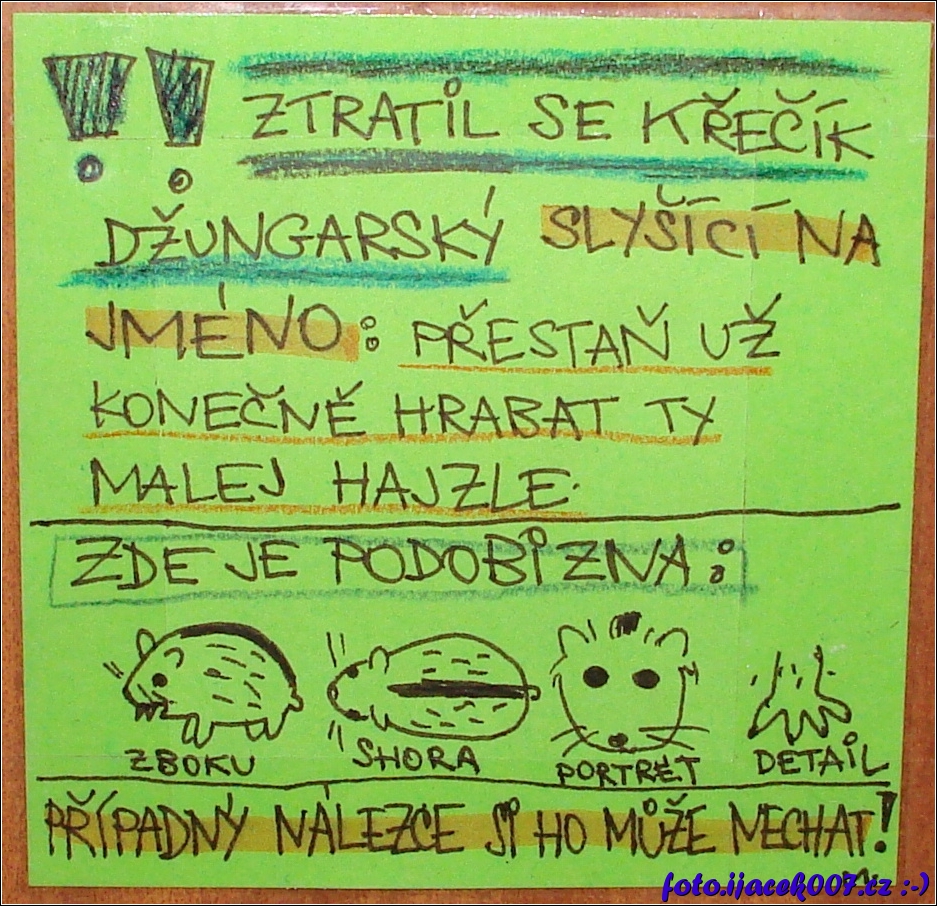 !! ZTRATIL SE KŘEČÍK
DŽUNGARSKÝ SLYŠÍCÍ NA
JMÉNO: PŘESTAŇ UŽ
KONEČNĚ HRABAT TY
MALEJ HAJZLE.
ZDE JE PODOBIZNA:
ZBOKU SHORA PORTRÉT DETAIL
PŘÍPADNÝ NÁLEZCE SI HO MŮŽE NECHAT!
foto.ijacek007.cz :-)